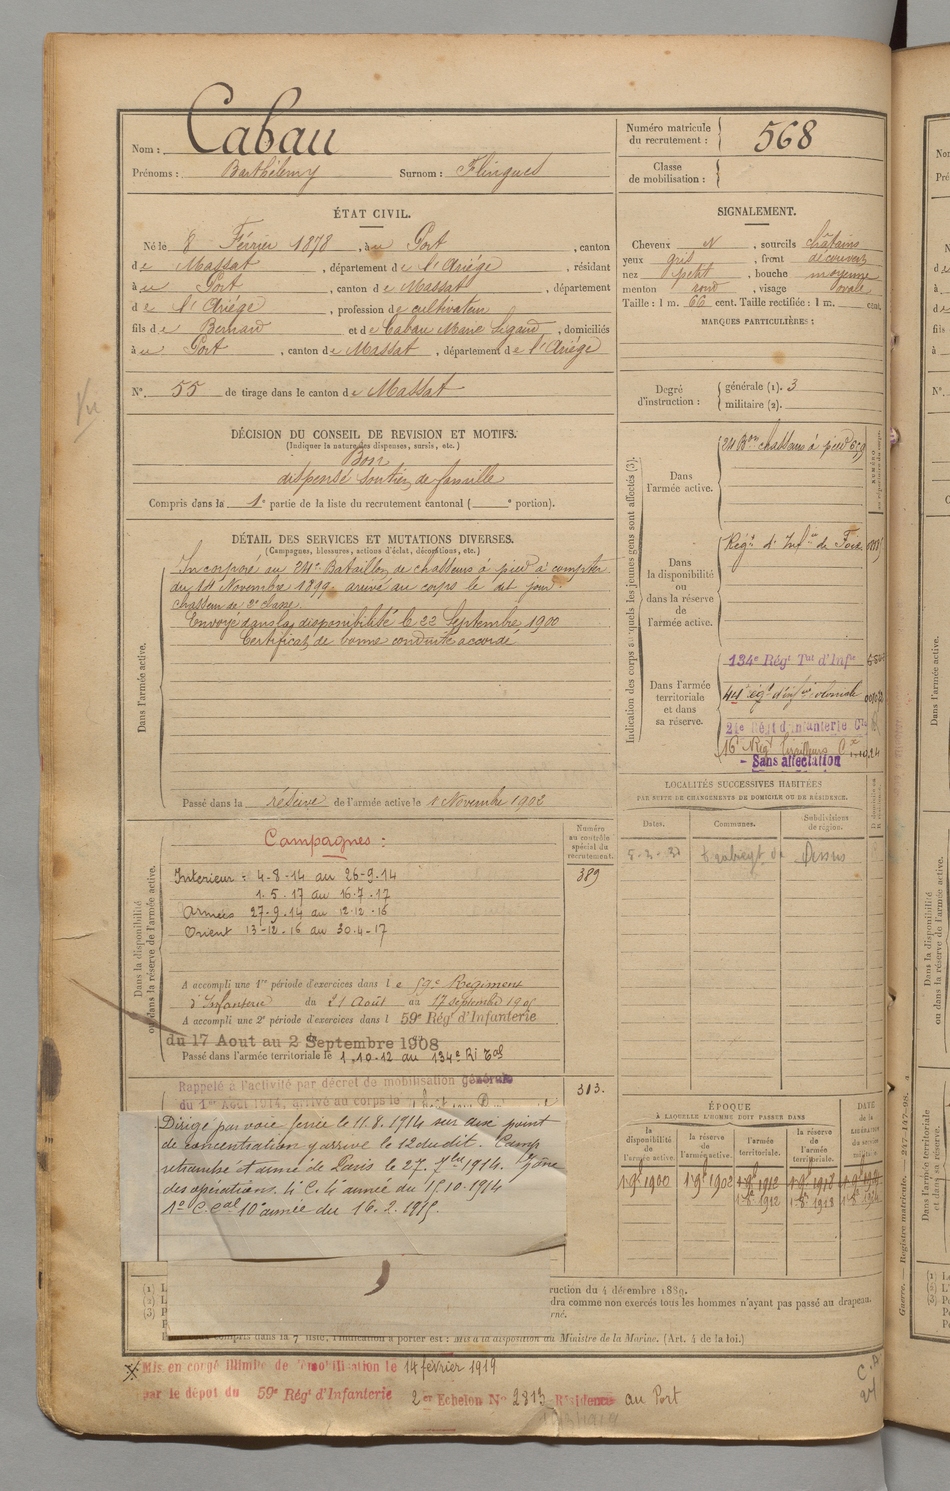 Nom : Cabau
Prénoms : Barthélemy Surnom : Flingues
Numéro matricule du recrutement : 568
Classe de mobilisation :
ÉTAT CIVIL.
Né le 8 Février 1878, à u Port, canton
de Massat, département de l'Ariège, résidant
à u Port, canton de Massat, département
de l'Ariège, profession de cultivateur
fils de Bernard et de Cabau Marie, domiciliés
à u Port, canton de Massat, département de l'Ariège
N° 55 de tirage dans le canton de Massat
Vu
SIGNALEMENT.
Cheveux N, sourcils châtains
yeux gris, front découvert
nez petit, bouche moyenne
menton rond, visage ovale
Taille : 1 m. 66 cent. Taille rectifiée : 1 m. cent.
MARQUES PARTICULIÈRES :
Degré d'instruction : générale (1). 3
militaire (2).
DÉCISION DU CONSEIL DE REVISION ET MOTIFS.
(Indiquer la nature des dispenses, sursis, etc.)
Bon
dispensé soutien de famille
Compris dans la 1e partie de la liste du recrutement cantonal ( e portion).
DÉTAIL DES SERVICES ET MUTATIONS DIVERSES.
(Campagnes, blessures, actions d'éclat, décorations, etc.)
Dans l'armée active.
Incorporé au 24e Bataillon de chasseurs à pied à compter
du 14 Novembre 1899, arrivé au corps le dit jour.
chasseur de 2e classe.
Envoyé dans la disponibilité le 22 Septembre 1900
Certificat de bonne conduite accordé
Passé dans la réserve de l'armée active le 1 Novembre 1902
Indication des corps auxquels les jeunes gens sont affectés (3).
Dans l'armée active.
24 Bon chasseurs à pied
Dans la disponibilité ou dans la réserve de l'armée active.
Régt d'Infie de Foix
Dans l'armée territoriale et dans sa réserve.
134e Régt Tal d'Infie
44e égt d'infie coloniale
21e Régt d'infanterie Cle
16e Régt Tirailleurs
- Sans affectation
LOCALITÉS SUCCESSIVES HABITÉES
PAR SUITE DE CHANGEMENTS DE DOMICILE OU DE RÉSIDENCE.
Dates. Communes. Subdivisions de région.
Dessus
Dans la disponibilité ou dans la réserve de l'armée active.
Numéro au contrôle spécial du recrutement.
389
Campagnes :
Intérieur : 4-8-14 au 26-9-14
1.5.17 au 16.7.17
Armées 27-9.14 au 12.12.16
Orient 13-12.16 au 30.4-17
A accompli une 1re période d'exercices dans l e 59e Régiment
d'Infanterie du 21 Août au 17 septembre 1905
A accompli une 2e période d'exercices dans l 59e Régt d'Infanterie
du 17 Aout au 2 Septembre 1908
Passé dans l'armée territoriale le 1.10.12 au 134e Ri Tal
313.
Rappelé à l'activité par décret de mobilisation générale
du 1er Août 1914, arrivé au corps le
Dirigé par voie ferrée le 11.8.1914 sur son point
de concentration y arrive le 12 du dit. Camp
retranché et armé de Paris le 27. 7bre 1914. Zône
des opérations. 4e C. 4e armée du 15.10.1914
1er C. Cal 10e armée du 16.2.1915.
ÉPOQUE
À LAQUELLE L'HOMME DOIT PASSER DANS
la disponibilité de l'armée active. la réserve de l'armée active. l'armée territoriale. la réserve de l'armée territoriale.
DATE de la LIBÉRATION du service militaire
1-9e 1900 1-9e 1902 1-9e 1912 1-9e 1918
1-8e 1912 1-8e 1918
(1)
(2)
(3)
ruction du 4 décembre 1889.
dra comme non exercés tous les hommes n'ayant pas passé au drapeau.
compris dans la 7e liste, l'indication à porter est : Mis à la disposition du Ministre de la Marine. (Art. 4 de la loi.)
Mis en congé illimité de démobilisation le 14 février 1919
par le dépot du 59e Régt d'Infanterie 2er Echelon No 2813 Résidence au Port
Guerre. — Registre matricule. — 247-147-98.